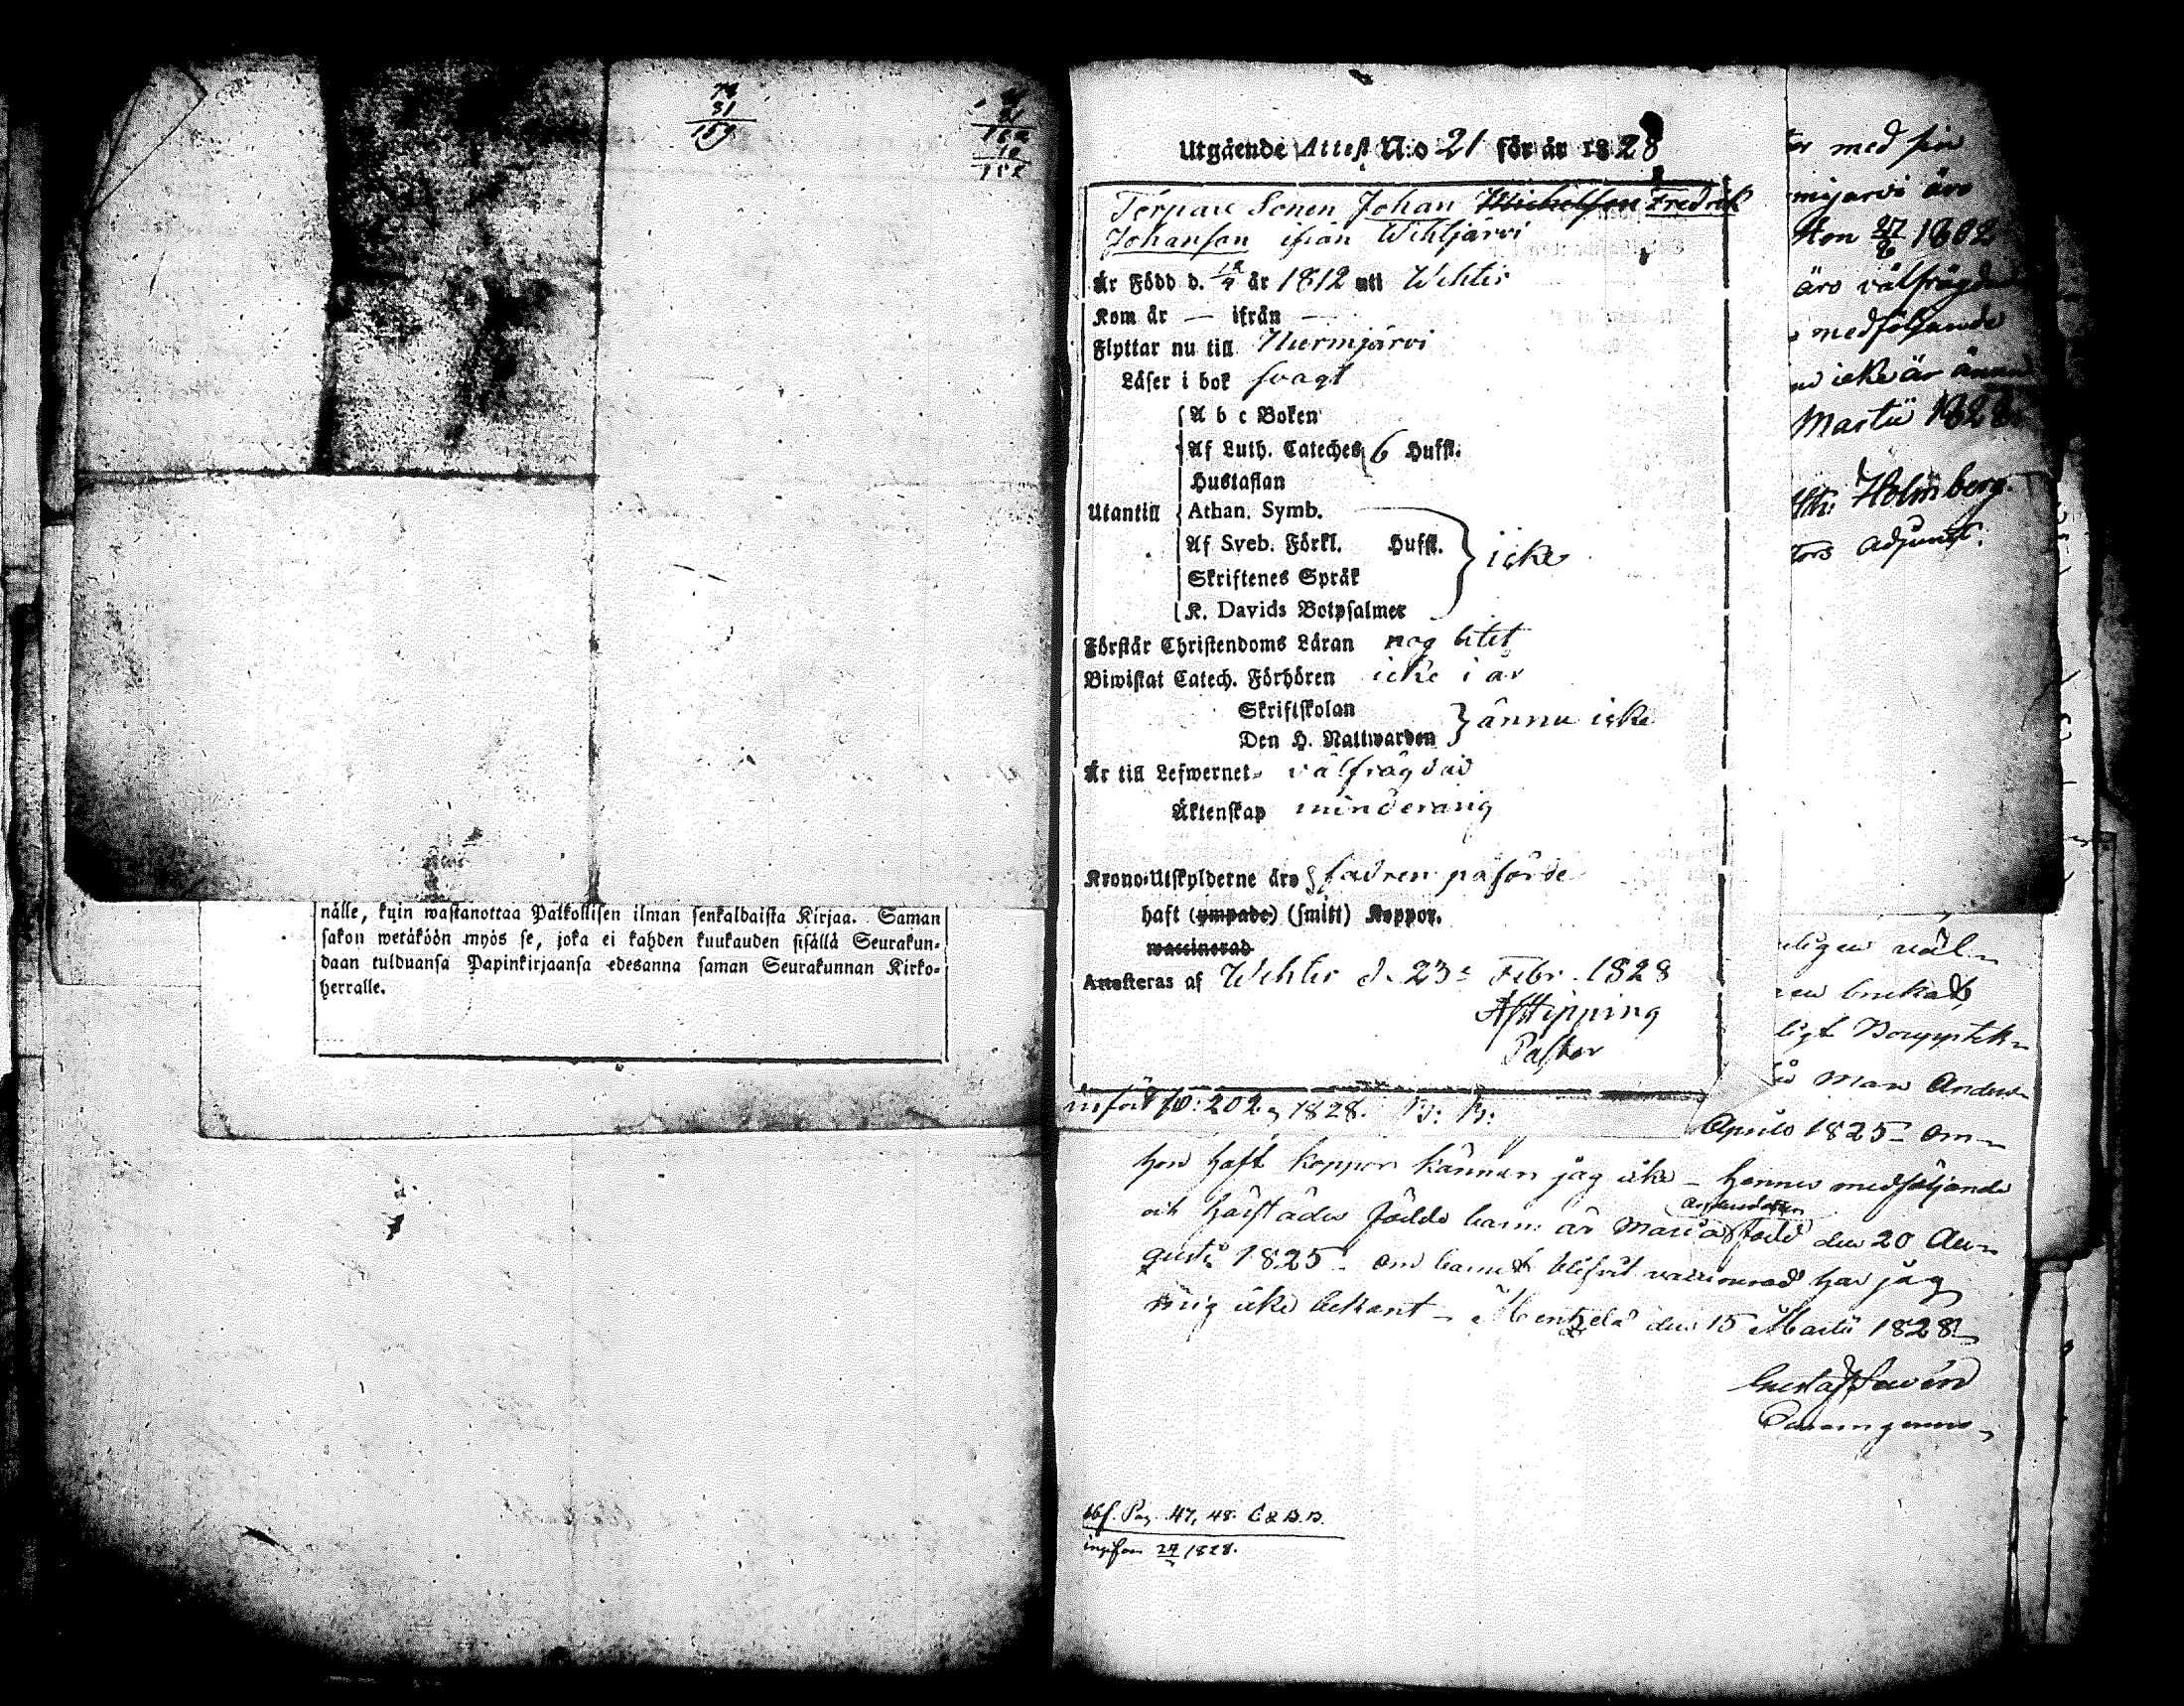 78
81
159
81
10
nälle, kuin wastanottaa Palkollisen ilman senkaldaista Kirjaa. Saman
sakon wetäköön myös se, joka ei kahden kuukauden sisällä Seurakun-
daan tulduansa Papinkirjaansa edesanna saman Seurakunnan Kirko-
herralle.
Utgående Attest N:o 21 för år 1828
Torpare Sonen Johan Michelson Fredrik
Johanson ifrån Wihtjärvi
År Född d. år 1812 uti Wihtis
Kom år — ifrån —
Flyttar nu till Nurmijärvi
Läser i bok svagt
A b c Boken
Af Luth. Cateches 6 Hufst.
Hustaflan
Utantill Athan. Symb.
Af Sveb. Förkl. Hufst. icke
Skriftenes Språk
K. Davids Botpsalmer
Förstår Christendoms Läran nog litet
Biwistat Catech. Förhören icke i år
Skriftskolan
Den H. Nattwarden ännu icke
Är till Lefwernet- välfrägdad
Äktenskap minderårig
Krono-Utskylderne äro fadren påförde
haft (ympade) (smitt) Koppor.
waccinerad
Attesteras af Wihtis d. 23 Febr. 1828
AfHipping
Pastor
införd fol: 202, 1828.
med sin
mijärvi äro
1802
äro välfrägdade
medföljande
icke är ännu
Martii 1828
Holmberg.
tors Adjunct.
man Anders
Aprilis 1825 om
hon haft koppor känner jag icke – hennes medföljande
och härstädes födde barn är Maria född den 20 Au-
gusti 1825 – om barnet blifvit vaccinerad har jag
mig icke bekant – Mentzelä den 15 Martii 1828
Gustaf
Pag. 47, 48.
1828.